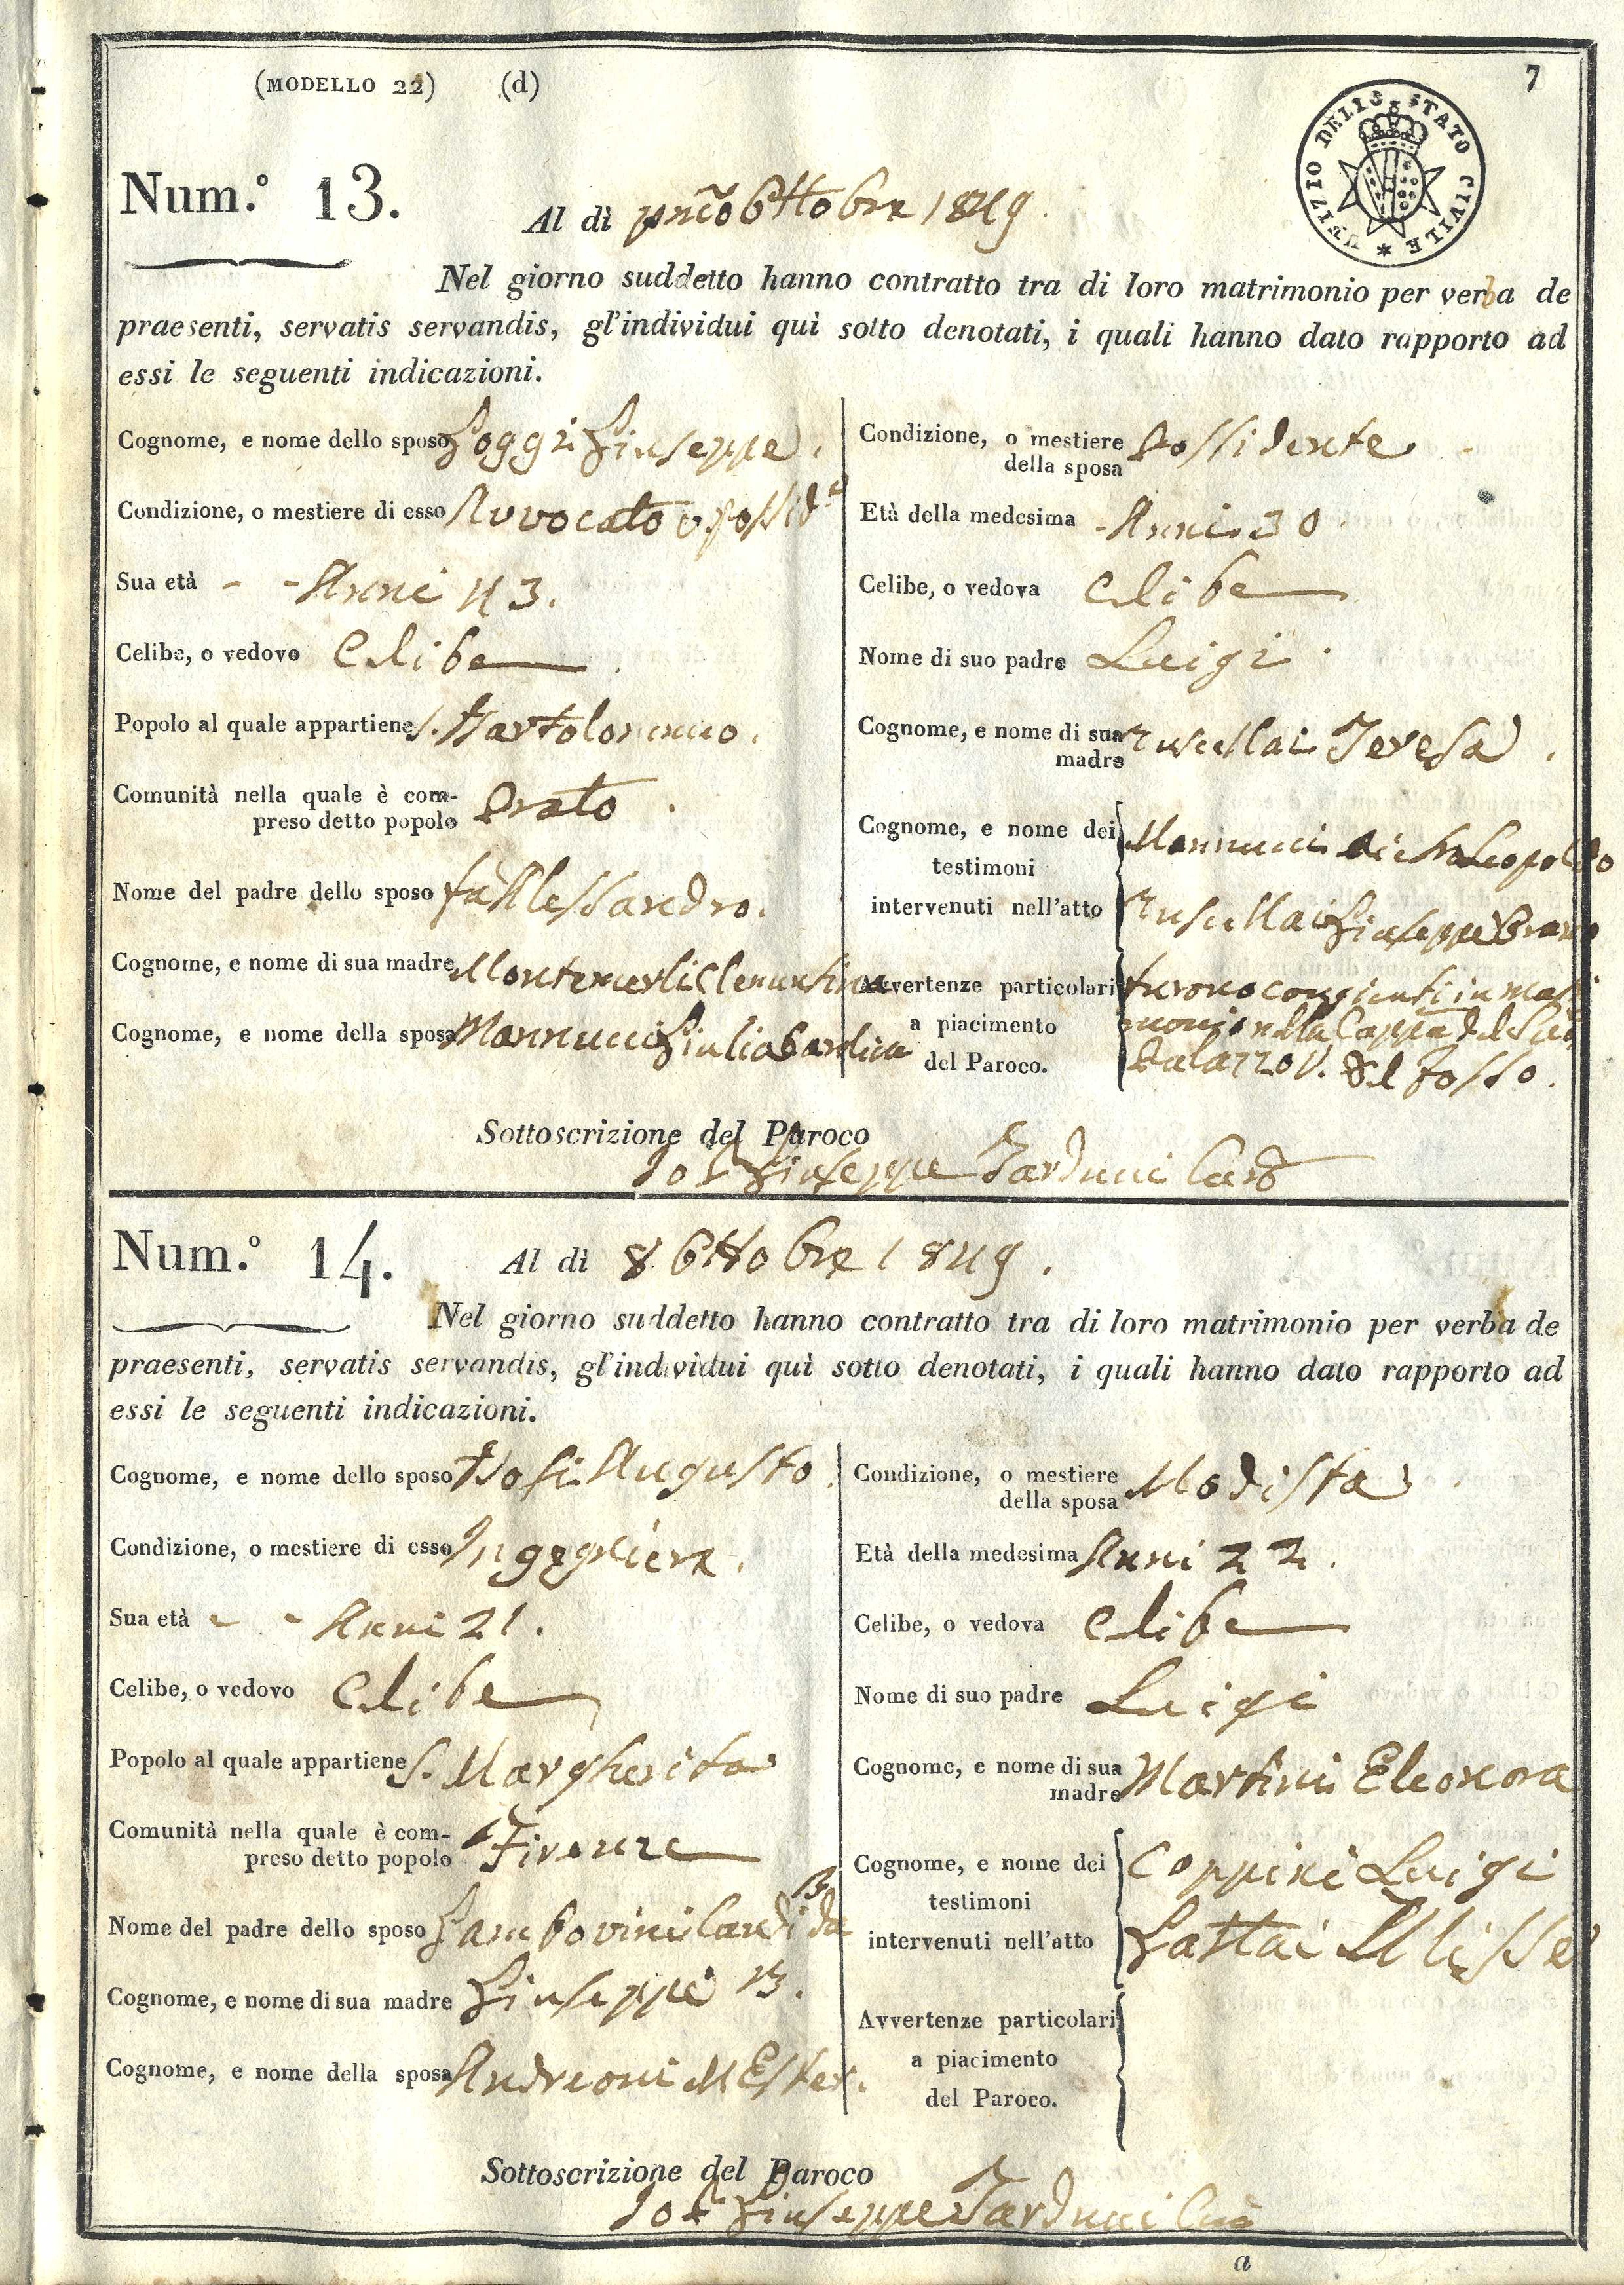 (MODELLO 22) (d) 7
UFIZIO DELLO STATO CIVILE
Num.° 13. Al dì Ottobre 1849.
Nel giorno suddetto hanno contratto tra di loro matrimonio per verba de
praesenti, servatis servandis, gl'individui quì sotto denotati, i quali hanno dato rapporto ad
essi le seguenti indicazioni.
Cognome, e nome dello sposo Goggi Giuseppe.
Condizione, o mestiere di esso Avvocato e Possid.e
Sua età - - Anni 43.
Celibe, o vedovo Celibe
Popolo al quale appartiene S. Bartolommeo.
Comunità nella quale è com-
preso detto popolo Prato.
Nome del padre dello sposo fù Alessandro.
Cognome, e nome di sua madre Montemerli Clementina
Cognome, e nome della sposa Mannucci Giulia
Condizione, o mestiere
della sposa Possidente
Età della medesima - Anni 30
Celibe, o vedova Celibe
Nome di suo padre Luigi.
Cognome, e nome di sua
madre Rucellai Teresa.
Cognome, e nome dei
testimoni
intervenuti nell'atto
Mannucci Leopoldo
Rucellai Giuseppe
Avvertenze particolari
a piacimento
del Paroco.
furono congiunti in matri
monio nella Cappa del
Palazzo V. del Fosso.
Sottoscrizione del Paroco
Io Giuseppe Tarducci
Num.° 14. Al dì 8 Ottobre 1849.
Nel giorno suddetto hanno contratto tra di loro matrimonio per verba de
praesenti, servatis servandis, gl'individui quì sotto denotati, i quali hanno dato rapporto ad
essi le seguenti indicazioni.
Cognome, e nome dello sposo Bosi Augusto.
Condizione, o mestiere di esso Ingegniere.
Sua età - - Anni 21.
Celibe, o vedovo Celibe
Popolo al quale appartiene S. Margherita
Comunità nella quale è com-
preso detto popolo Firenze
Nome del padre dello sposo Gambovini Candida
Cognome, e nome di sua madre Giuseppe B.
Cognome, e nome della sposa Andreoni M Ester.
Condizione, o mestiere
della sposa Modista
Età della medesima Anni 22.
Celibe, o vedova Celibe
Nome di suo padre Luigi
Cognome, e nome di sua
madre Martini Eleonora
Cognome, e nome dei
testimoni
intervenuti nell'atto
Coppini Luigi
Gattai Ulisse
Avvertenze particolari
a piacimento
del Paroco.
Sottoscrizione del Paroco
Io Giuseppe Tarducci
a